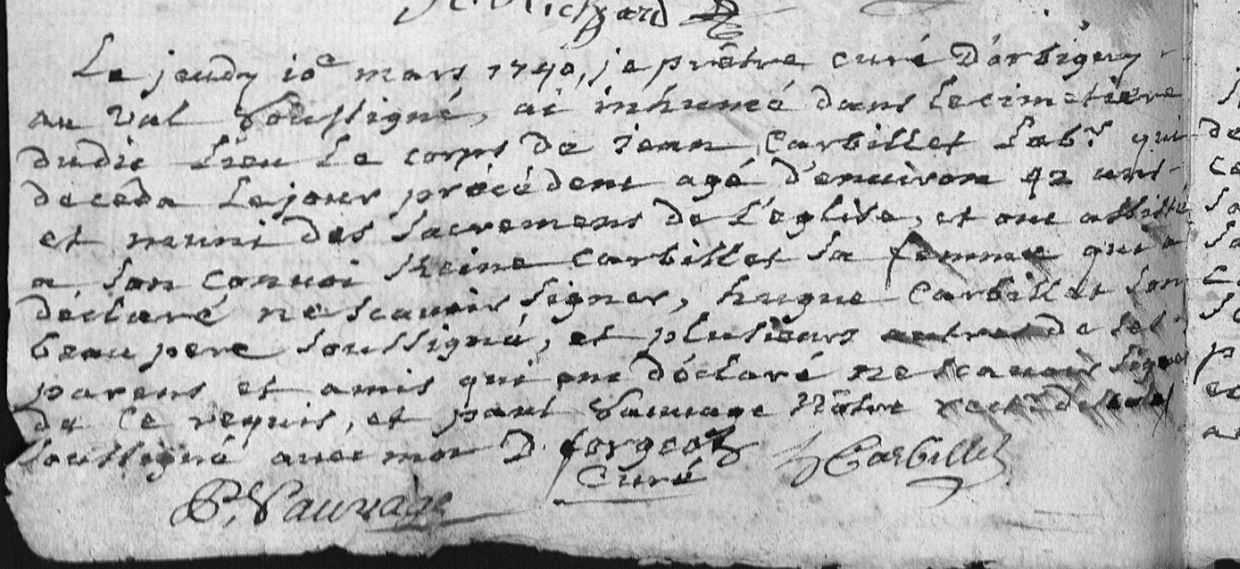 Richard
Le jeudy 10e mars 1740, je prêtre curé D'orbigny
au Val Soussigné, ai inhumé dans le cimetiere
dudit Lieu Le corps de Jean Carbillet Labr qui
deceda Le jour précédent agé d'environ 42 ans
et muni des Sacremens de L'eglise, et ont assisté
a Son convoi Reine Carbillet Sa femme qui a
déclaré ne scavoir signer, hugue Carbillet son
beau pere Soussigné, et plusieurs autres de ses
parens et amis qui ont déclaré ne scavoir signer
de ce requis, et paul Sauvage Nôtre
Soussigné avec moi D. forgeot
Curé
h Carbillet
P. Sauvage